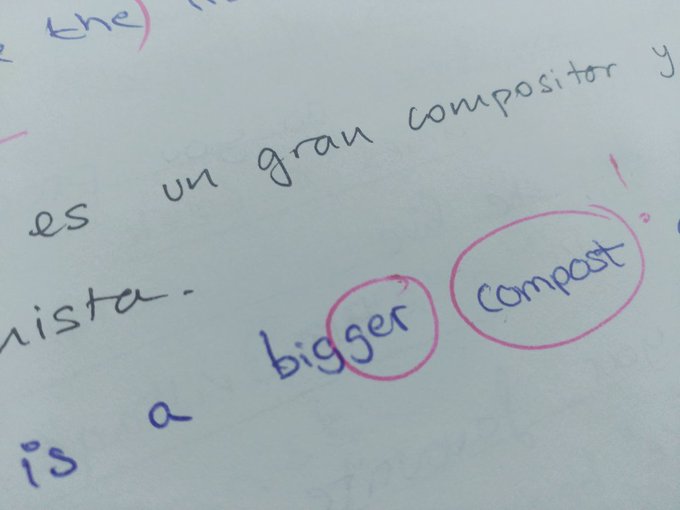 the)
es un gran compositor y
nista.
is a bigger compost !